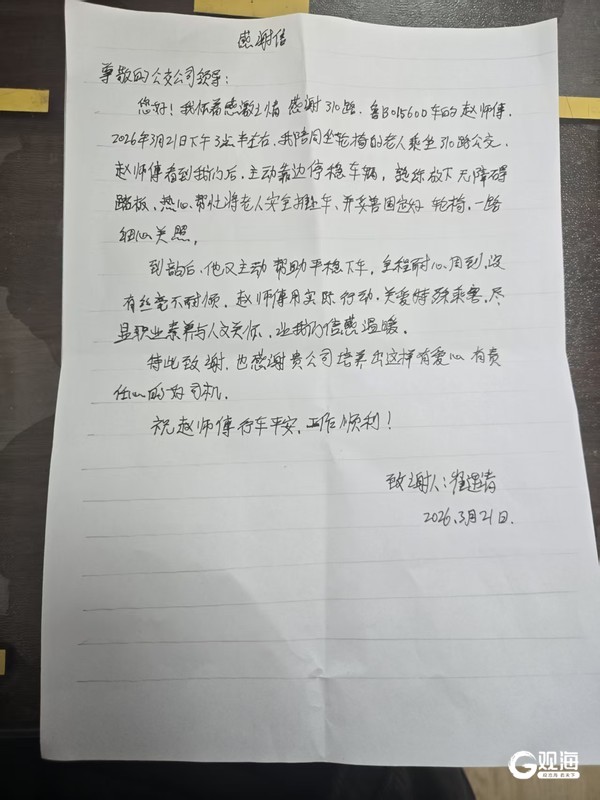 感谢信
尊敬的公交公司领导：
您好！我怀着感激之情 感谢310路、鲁B01560D车的赵师傅。
2026年3月21日下午3点半左右，我陪同坐轮椅的老人乘坐310路公交，
赵师傅看到我们后，主动靠边停稳车辆，熟练放下无障碍
踏板，热心帮忙将老人安全推上车、并妥善固定好轮椅，一路
细心关照。
到站后，他又主动帮助平稳下车，全程耐心、周到，没
有丝毫不耐烦。赵师傅用实际行动，关爱特殊乘客，尽
显职业素养与人文关怀，让我们倍感温暖。
特此致谢，也感谢贵公司培养出这样有爱心 有责
任心的好司机。
祝赵师傅行车平安，工作顺利！
致谢人：崔
2026.3月21日.
观海